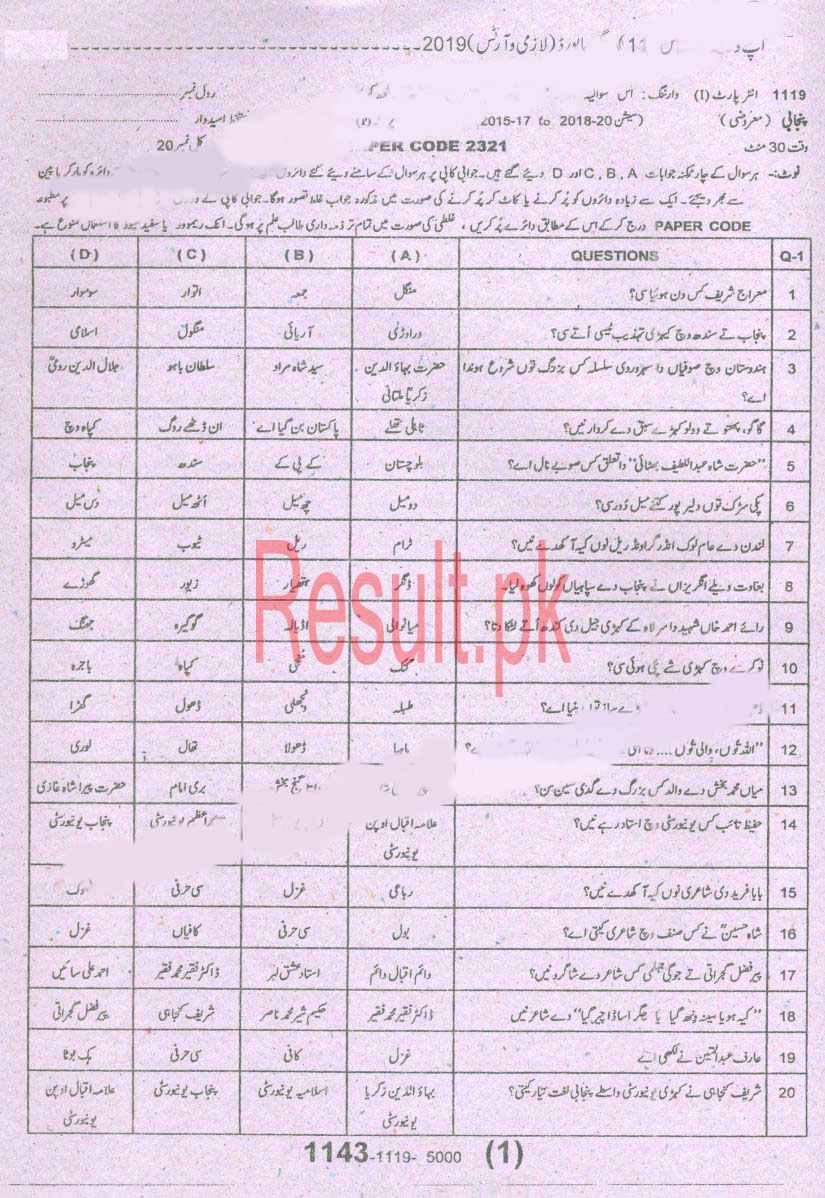 2019(لازمی و آرٹس)
1119 انٹر پارٹ (I) وارننگ: اس سوالیہ رول نمبر
پنجابی (معروضی) (سیشن 2015-17 to 2018-20) دستخط امیدوار
وقت 30 منٹ PER CODE 2321 کل نمبر 20
نوٹ:- ہر سوال کے چار ممکنہ جوابات A ,B ,C اور D دیئے گئے ہیں۔ جوابی کاپی پر ہر سوال کے سامنے دیئے گئے دائروں دائرہ کو مارکر یا پین
سے بھر دیجئے۔ ایک سے زیادہ دائروں کو پُر کرنے یا کاٹ کر پُر کرنے کی صورت میں مذکورہ جواب غلط تصور ہوگا۔ جوابی کاپی کے پر مطبوعہ
PAPER CODE درج کر کے اس کے مطابق دائرے پُر کریں، غلطی کی صورت میں تمام تر ذمہ داری طالب علم پر ہوگی۔ انک ریموور یا سفید کا استعمال ممنوع ہے۔
Q-1 QUESTIONS (A) (B) (C) (D)
1 معراج شریف کس دن ہوئیا سی؟ منگل جمعہ اتوار سوموار
2 پنجاب تے سندھ وچ کیہڑی تہذیب ٹیسی اُتے سی؟ دراوڑی آریائی منگول اسلامی
3 ہندوستان وچ صوفیاں دا سہروردی سلسلہ کس بزرگ توں شروع ہوندا حضرت بہاؤ الدین سید شاہ مراد سلطان باہو جلال الدین رومیؒ
اے؟ زکریا ملتانی
4 گاگو، پھتو تے دولو کیہڑے سبق دے کردار نیں؟ ٹاہلی تھلے پاکستان بن گیا اے ان ڈٹھے روگ کپاہ وچ
5 "حضرت شاہ عبداللطیف بھٹائی" دا تعلق کس صوبے نال اے؟ بلوچستان کے پی کے سندھ پنجاب
6 پکی سڑک توں دلیر پور کتنے میل دُور سی؟ دو میل چھ میل اٹھ میل دس میل
7 لندن دے عام لوک انڈر گراؤنڈ ریل نوں کیہ آکھدے نیں؟ ٹرام ریل ٹیوب میٹرو
8 بغاوت ویلے انگریزاں نے پنجاب دے سپاہیاں کولوں کھوہ لیا۔ ڈنگر ہتھیار زیور گھوڑے
9 رائے احمد خاں شہید دا سر لاہ کے کیہڑی جیل دی کندھ اُتے لٹکا دتا؟ میانوالی اڈیالہ گوگیرہ جھنگ
10 ٹوکرے وچ کیہڑی شے پئی ہوئی سی؟ کنک کپاہ باجرہ
11 اے؟ طبلہ ونجھلی ڈھول گھڑا
12 "اللہ توں، والی توں .... ڈھولا تھال لوری
13 میاں محمد بخش دے والد کس بزرگ دے گدی سین سن؟ گنج بخش بری امام حضرت پیرا شاہ غازی
14 حفیظ تائب کس یونیورسٹی وچ استاد رہے نیں؟ علامہ اقبال اوپن یونیورسٹی پنجاب یونیورسٹی
یونیورسٹی
15 بابا فرید دی شاعری نوں کیہ آکھدے نیں؟ رباعی غزل سی حرفی
16 شاہ حسینؒ نے کس صنف وچ شاعری کیتی اے؟ بول سی حرفی کافیاں غزل
17 پیر فضل گجراتی تے جوگی جہلمی کس شاعر دے شاگرد نیں؟ دائم اقبال دائم استاد عشق لہر ڈاکٹر فقیر محمد فقیر احمد علی سائیں
18 "کیہ ہویا سینہ وِنھ گیا یا جگر اساڈا چیر گیا" دے شاعر نیں ڈاکٹر فقیر محمد فقیر حکیم شیر محمد ناصر شریف کنجاہی پیر فضل گجراتی
19 عارف عبدالمتین نے لکھی اے غزل کافی سی حرفی بک بوٹا
20 شریف کنجاہی نے کیہڑی یونیورسٹی واسطے پنجابی لغت تیار کیتی؟ بہاؤ الدین زکریا اسلامیہ یونیورسٹی پنجاب یونیورسٹی علامہ اقبال اوپن
یونیورسٹی یونیورسٹی
1143-1119- 5000 (1)
Result.pk